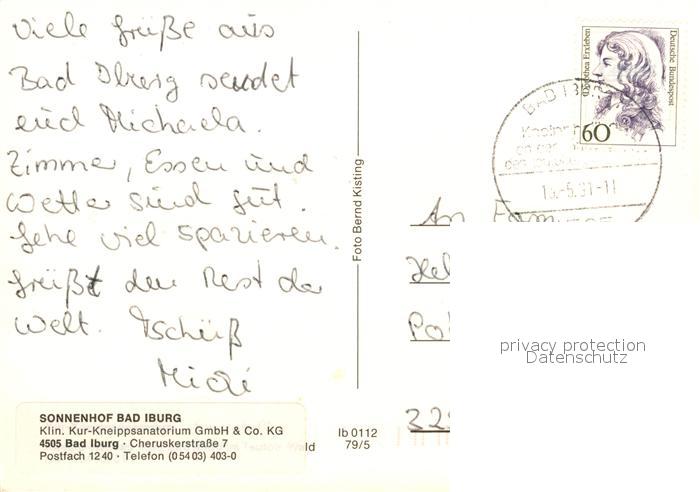 Viele Grüße aus
Bad Iburg sendet
euch Michaela.
Zimmer, Essen und
Wetter sind gut.
Gehe viel spazieren.
Grüßt den Rest der
Welt. Tschüß
Michi
Foto Bernd Kisting
SONNENHOF BAD IBURG
Klin. Kur-Kneippsanatorium GmbH & Co. KG
4505 Bad Iburg · Cheruskerstraße 7
Postfach 1240 · Telefon (05403) 403-0
Ib 0112
79/5
Dorothea Erxleben
Deutsche Bundespost
60
BAD IB
15.-5.91-11
An Fam
privacy protection
Datenschutz